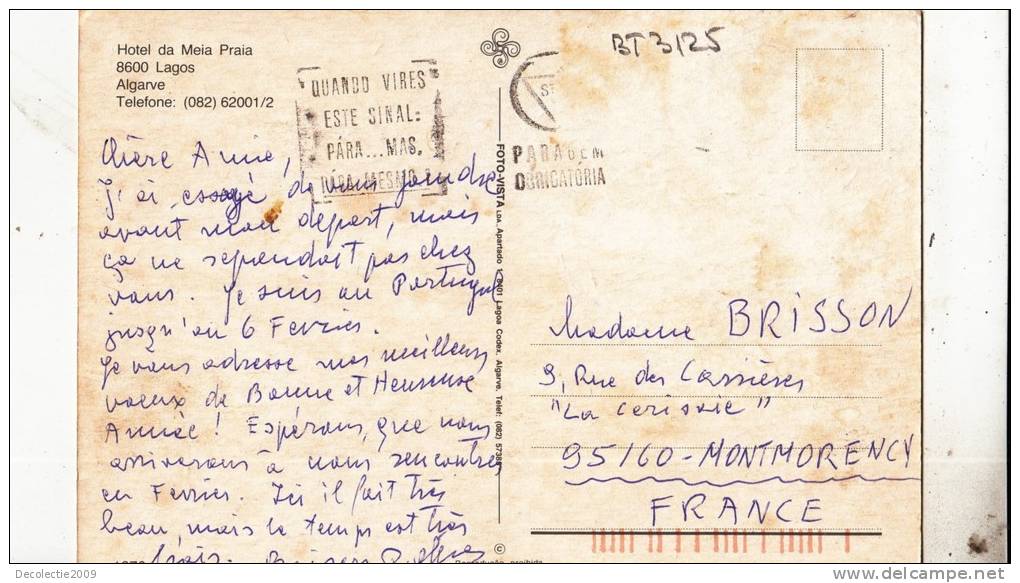 Hotel da Meia Praia
8600 Lagos
Algarve
Telefone: (082) 62001/2
BT 3125
QUANDO VIRES
ESTE SINAL:
PÁRA...MAS,
PÁRA MESMO!
ST
PARAGEM
OBRIGATÓRIA
Chère Annie,
J'ai essayé de vous joindre
avant mon départ, mais
ça ne répondait pas chez
vous. Je suis au Portugal
jusqu'au 6 Fevrier.
Je vous adresse mes meilleurs
voeux de Bonne et Heureuse
Année! Espérons, que nous
arriverons à nous rencontrer
en Fevrier. Ici il fait très
beau, mais le temps est très
frais. Baisers
FOTO-VISTA LDA. Apartado 1 8401 Lagoa Codex. Algarve. Telef: (082) 57388
©
Reprodução proibida
Madame BRISSON
9, Rue des Carrières
"La Cerisaie"
95160-MONTMORENCY
FRANCE
Decolectie2009
delcampe.net